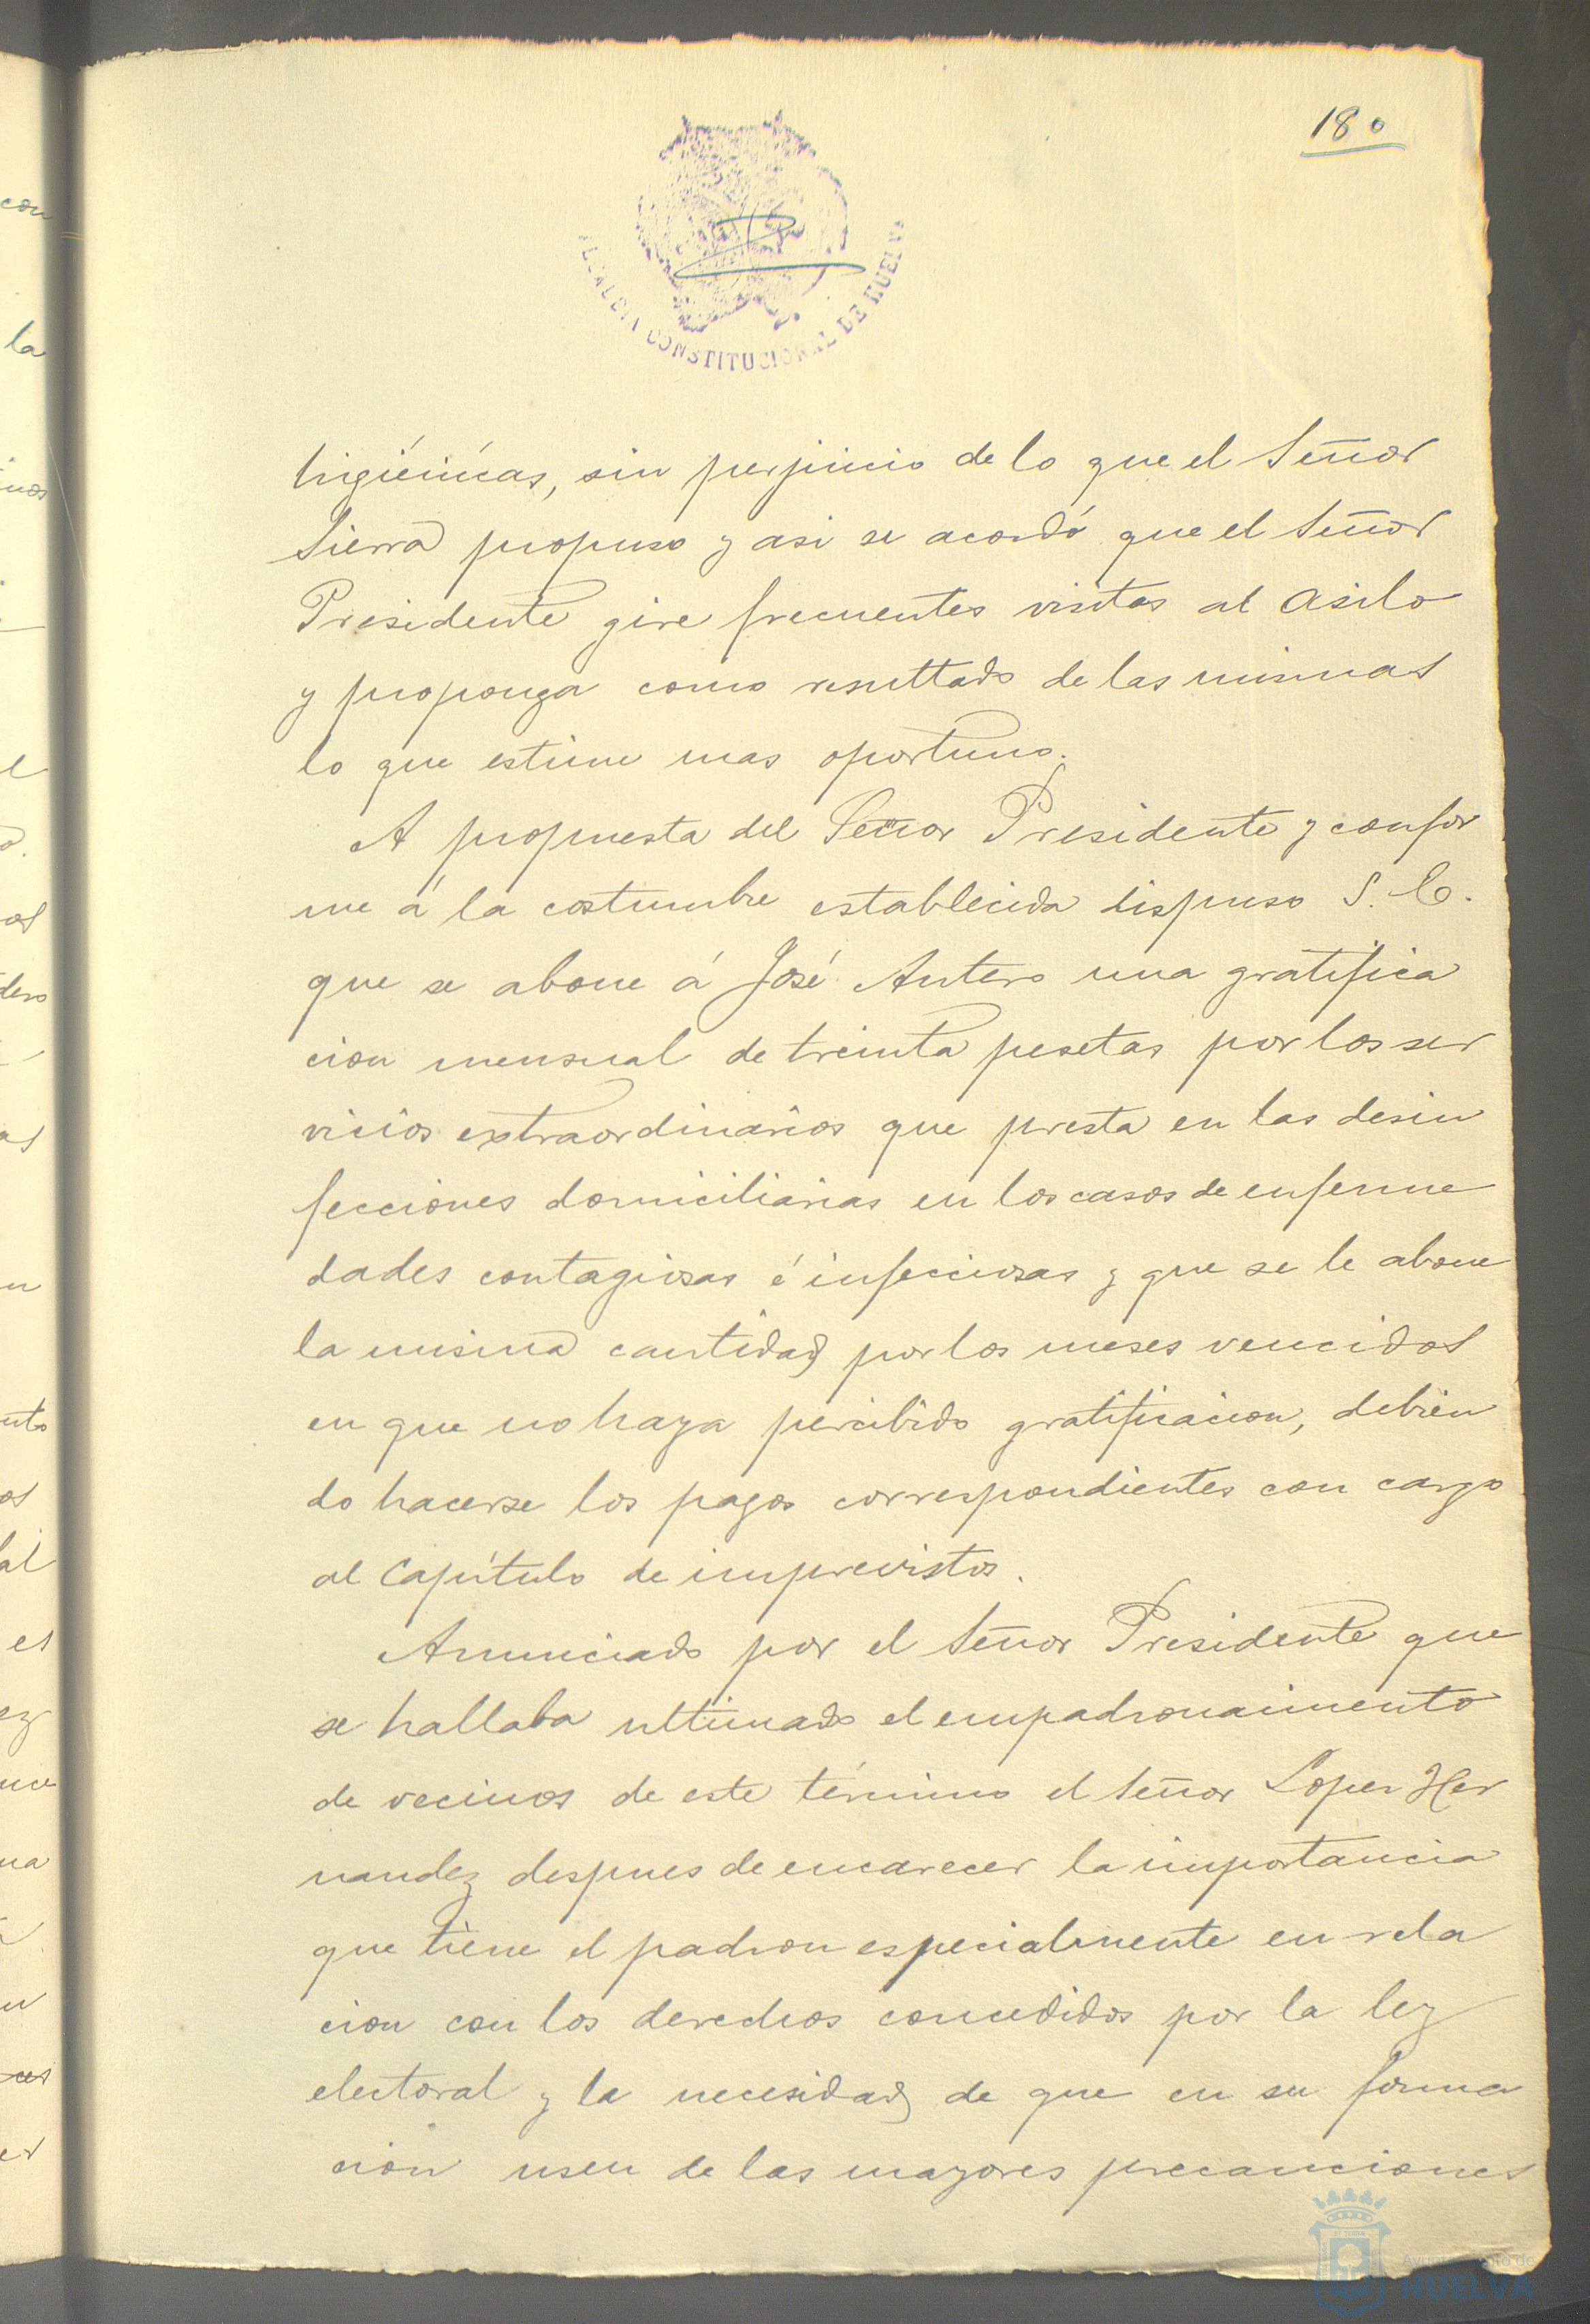 180
ALCALDIA CONSTITUCIONAL DE HUELVA
higiénicas, sin perjuicio de lo que el Señor
Sierra propuso y asi se acordó que el Señor
Presidente gire frecuentes visitas al asilo
y proponga como resultado de las mismas
lo que estime mas oportuno.
A propuesta del Señor Presidente y confor
me á la costumbre establecida dispuso S. E.
que se abone á José Antero una gratifica
cion mensual de treinta pesetas por los ser
vicios extraordinarios que presta en las desin
fecciones domiciliarias en los casos de enferme
dades contagiosas é infecciosas y que se le abone
la misma cantidad por los meses vencidos
en que no haya percibido gratificacion, debien
do hacerse los pagos correspondientes con cargo
al Capítulo de imprevistos.
Anunciado por el Señor Presidente que
se hallaba ultimado el empadronaimento
de vecinos de este término el Señor Lopez Her
nandez despues de encarecer la importancia
que tiene el padron especialmente en rela
cion con los derechos concedidos por la ley
electoral y la necesidad de que en su forma
cion usen de las mayores precauciones
Ayuntamiento de
HUELVA